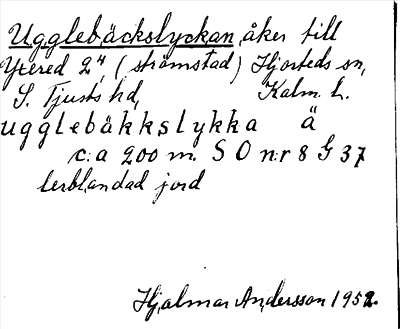 Ugglebäckslyckan åker till
Ytered 2⁴, (strömstad) Hjorteds sn,
S. Tjusts hd, Kalm. l.
ugglebäkkslykka ä
c:a 200 m. S O n:r 8 G 37
lerblandad jord
Hjalmar Andersson 1952.